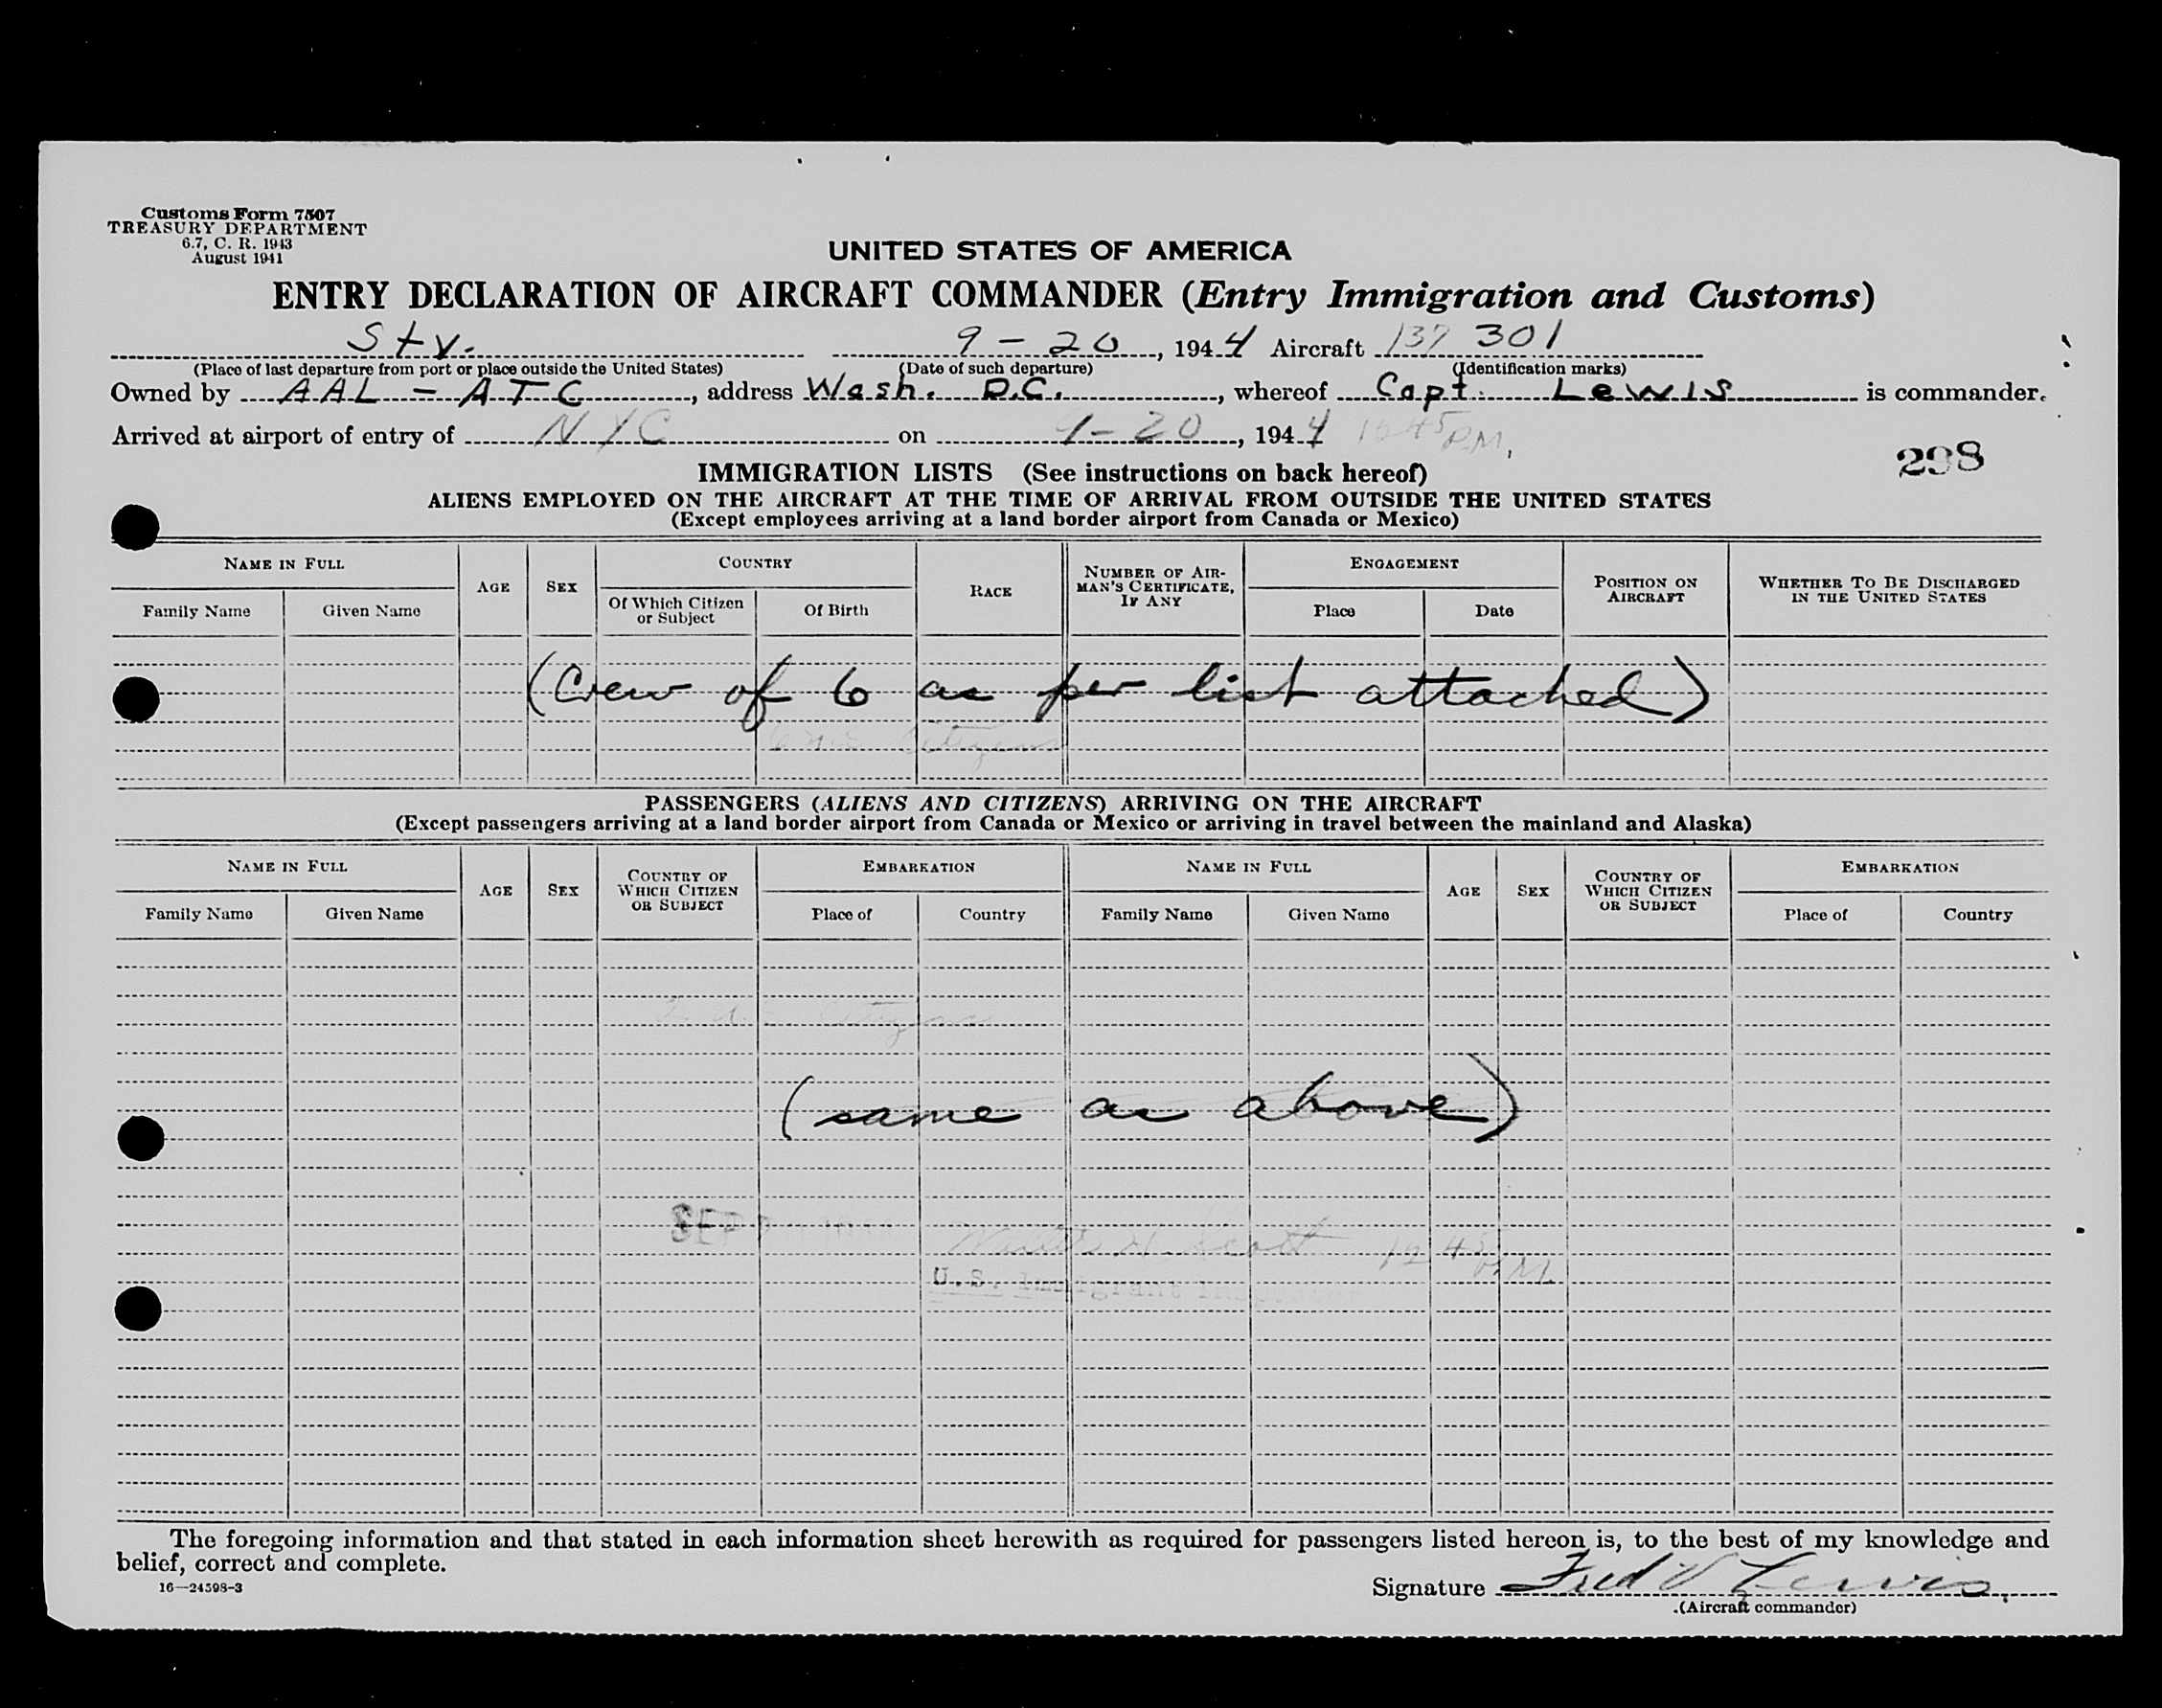 Customs Form 7507
TREASURY DEPARTMENT
6.7, C. R. 1943
August 1941
UNITED STATES OF AMERICA
ENTRY DECLARATION OF AIRCRAFT COMMANDER (Entry Immigration and Customs)
Stv. 9-20, 1944 Aircraft 137 301
(Place of last departure from port or place outside the United States) (Date of such departure) (Identification marks)
Owned by AAL - ATC, address Wash. D.C., whereof Capt. Lewis is commander.
Arrived at airport of entry of NYC on 9-20, 1944 P.M.
298
IMMIGRATION LISTS (See instructions on back hereof)
ALIENS EMPLOYED ON THE AIRCRAFT AT THE TIME OF ARRIVAL FROM OUTSIDE THE UNITED STATES
(Except employees arriving at a land border airport from Canada or Mexico)
NAME IN FULL AGE SEX COUNTRY RACE NUMBER OF AIRMAN'S CERTIFICATE, IF ANY ENGAGEMENT POSITION ON AIRCRAFT WHETHER TO BE DISCHARGED IN THE UNITED STATES
Family Name Given Name Of Which Citizen or Subject Of Birth Place Date
(Crew of 6 as per list attached)
Citizens
PASSENGERS (ALIENS AND CITIZENS) ARRIVING ON THE AIRCRAFT
(Except passengers arriving at a land border airport from Canada or Mexico or arriving in travel between the mainland and Alaska)
NAME IN FULL AGE SEX COUNTRY OF WHICH CITIZEN OR SUBJECT EMBARKATION NAME IN FULL AGE SEX COUNTRY OF WHICH CITIZEN OR SUBJECT EMBARKATION
Family Name Given Name Place of Country Family Name Given Name Place of Country
(same as above)
SEP
Walter H. Scott 12 45 P.M.
U.S. Immigrant
The foregoing information and that stated in each information sheet herewith as required for passengers listed hereon is, to the best of my knowledge and
belief, correct and complete.
16—24598-3
Signature Fred V Lewis
(Aircraft commander)